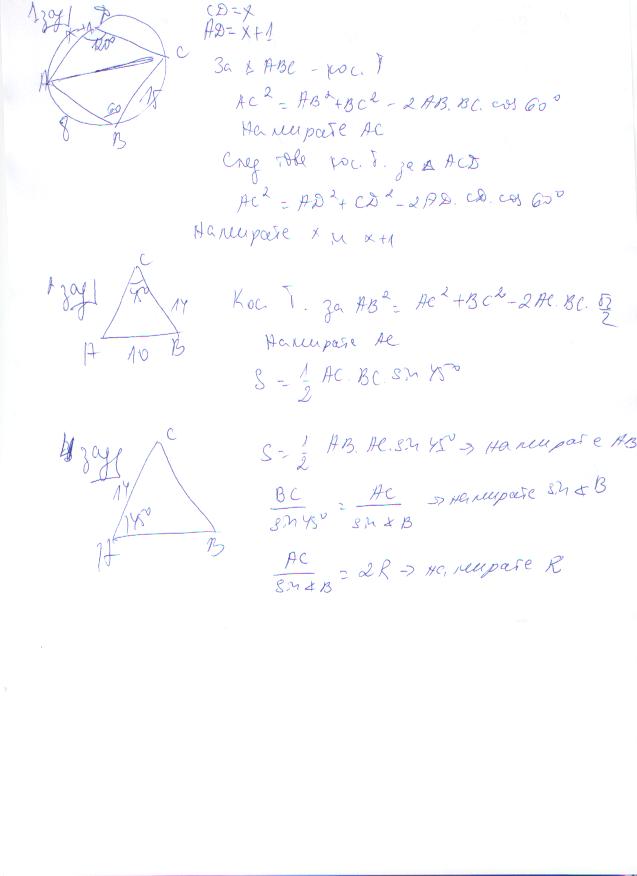 1 зад
x+1
D
120°
C
A
60
15
8
B
CD=x
AD=x+1
За △ ABC – кос. Т
AC² = AB²+BC² – 2AB.BC.cos 60°
Намирате AC
След това кос. Т. за △ ACD
AC² = AD²+CD²–2AD.CD.cos 60°
Намирате x и x+1
зад
C
45°
14
A 10 B
Кос Т. за AB² = AC²+BC²–2AC.BC.√2/2
Намирате AC
S = 1/2 AC.BC.sin 45°
4 зад
C
14
45°
A B
S = 1/2 AB.AC.sin 45° → намирате AB
BC/sin 45° = AC/sin ∢B → намирате sin ∢B
AC/sin ∢B = 2R → намирате R